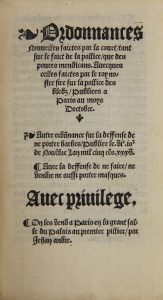 Ordonnances
Nouvelles faictes par la court/tant
sur le faict de la police/que des
povres mendicans. Avecques
celles faictes par le roy nos-
tre sire sur la police des
Publiees a
Paris au moys
Doctobre.
Autre ordonance sur la deffense de
ne porter barbes/Publiee le
de Novebre Lan mil cinq cēs.
Avec la deffense de ne faire/ne
vendre ne aussi porter masques.
Avec privilege,
On les vend a Paris en la grant sal-
le du Palais au premier pillier/par
Jehan andre.